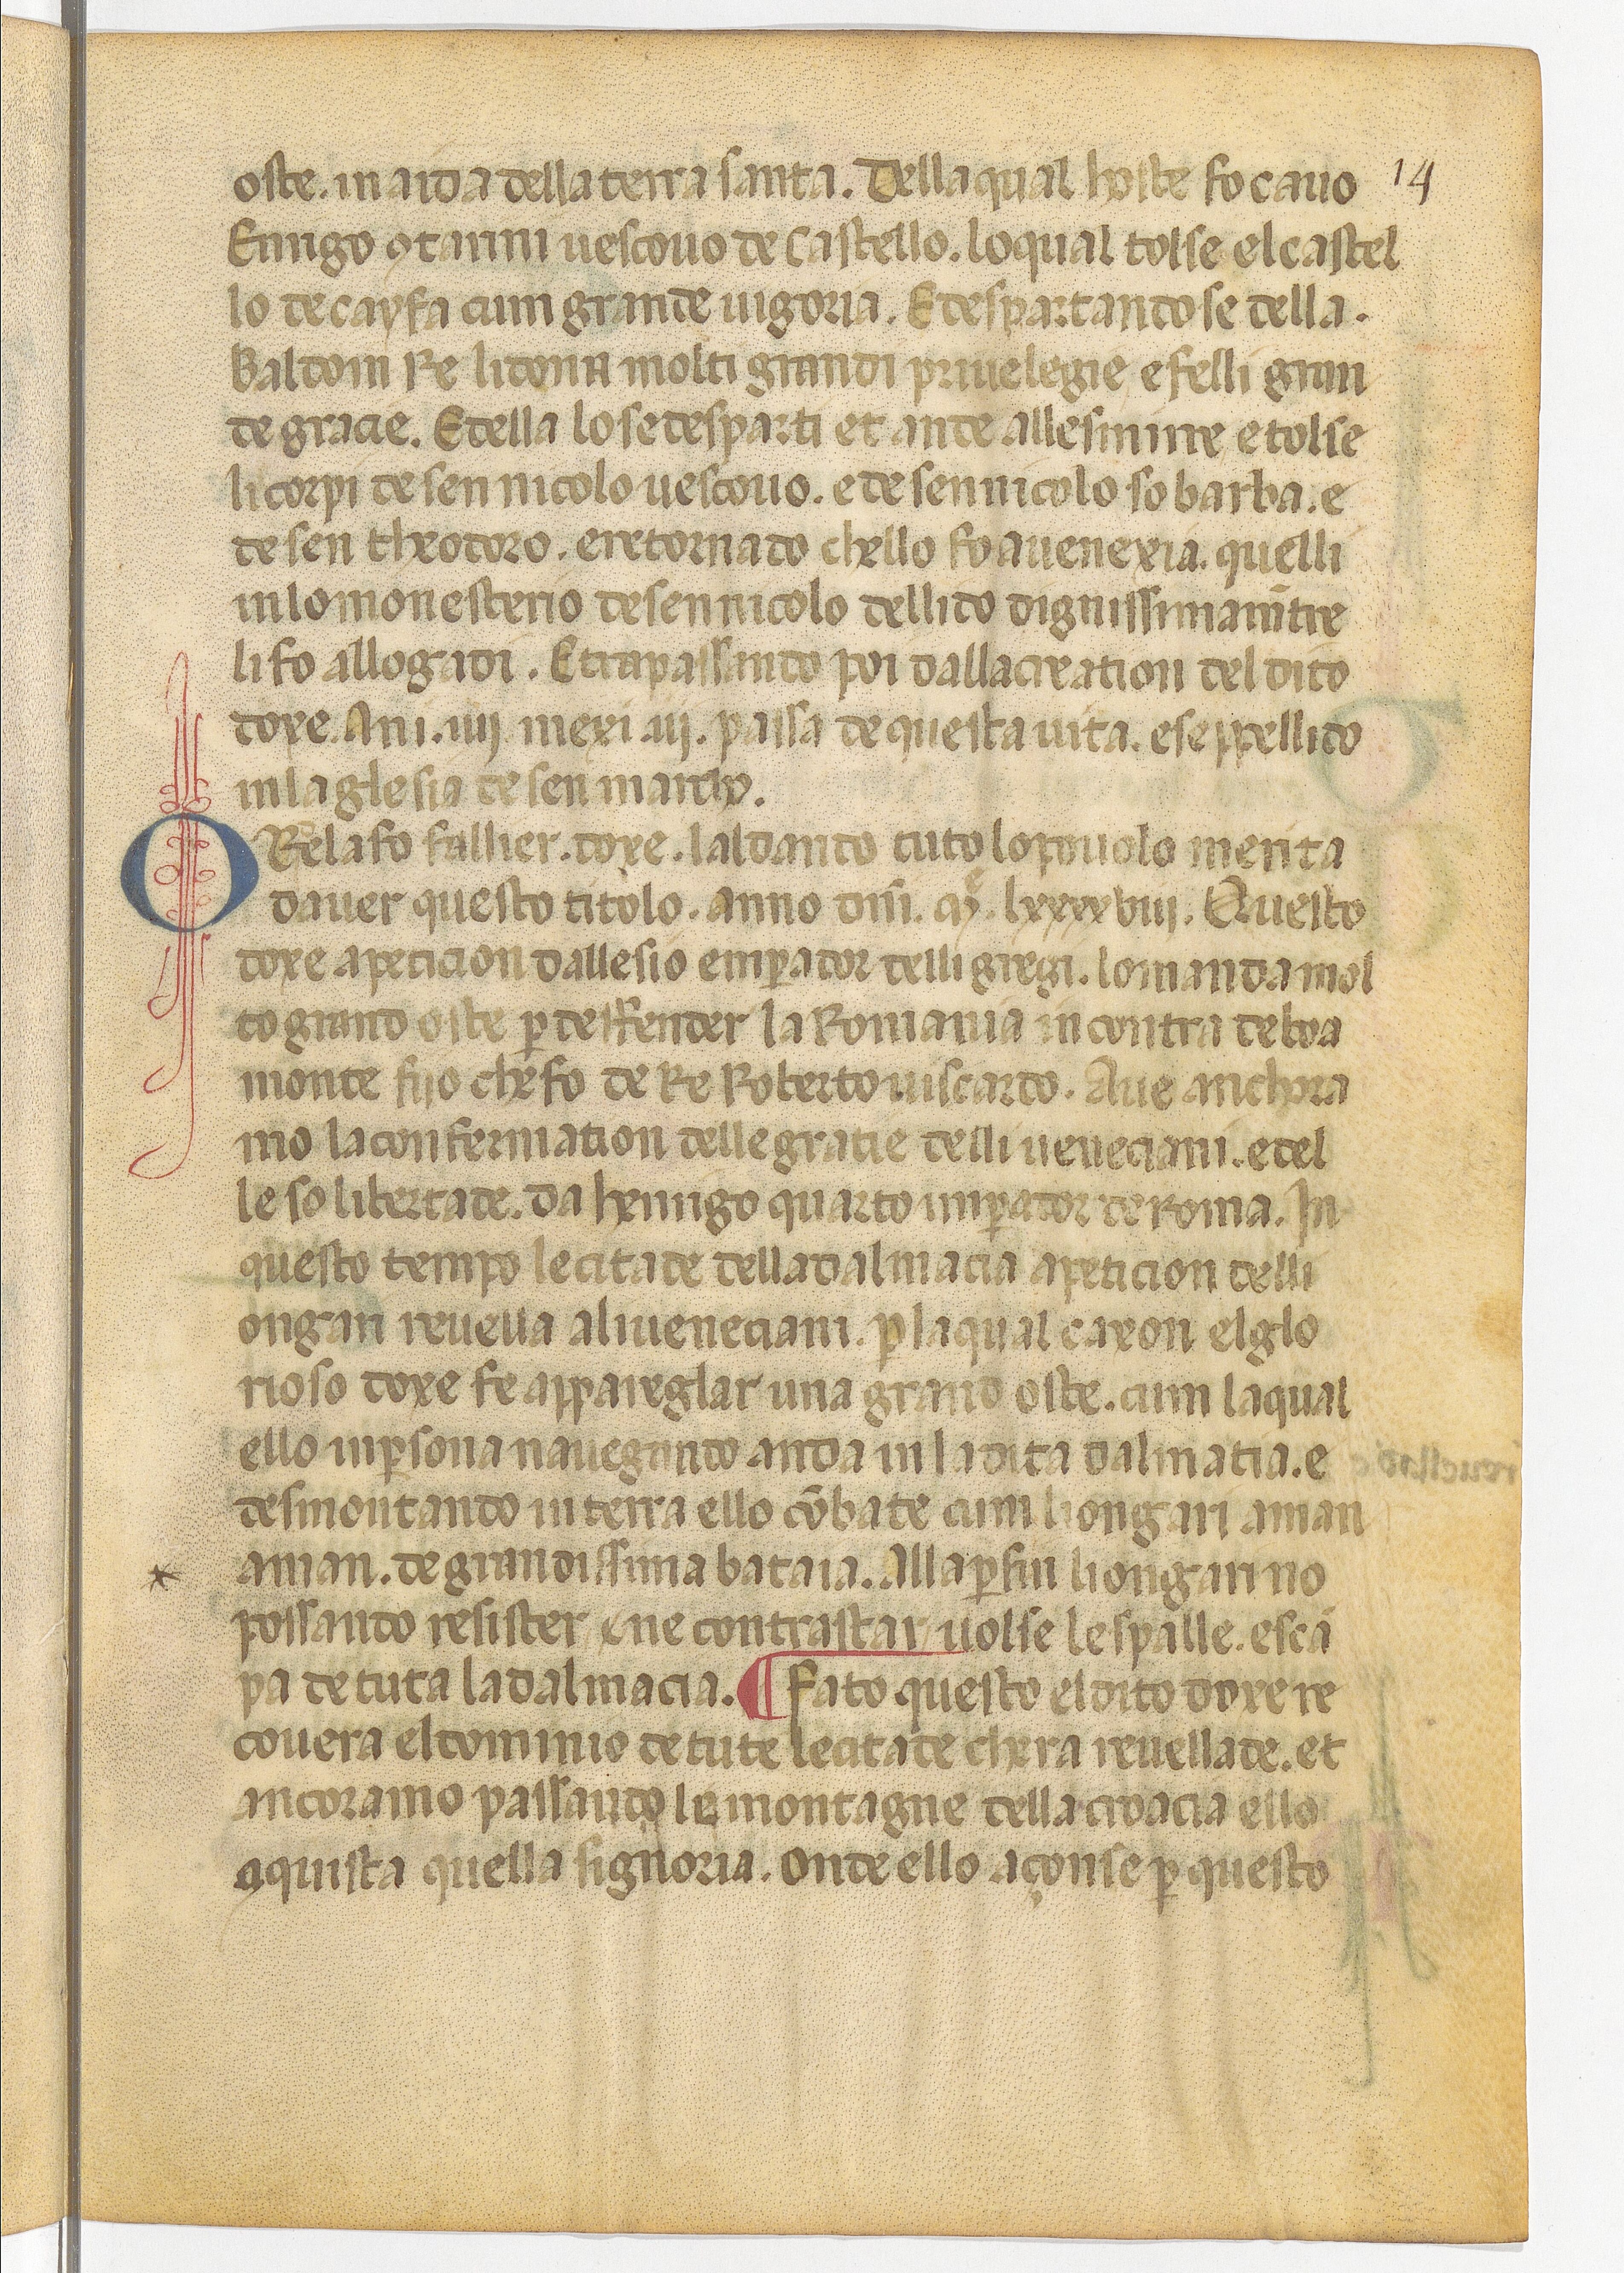 14
oste. in aida della terra santa. Della qual hoste fo cauo
Enrigo ꝯtarini uescouo de Castello. lo qual tolse el castel
lo de cayfa cum grande uigoria. E despartandose della.
Baldoin Re li dona molti grandi priuelegie e felli gran
de gracie. E della lo se desparti et ande alle smirre e tolse
li corpi de sen nicolo uescouo. e de sen nicolo so barba. e
de sen theodoro. e retornado chello fo a uenexia. quelli
in lo monesterio de sen nicolo del lido dignissimam̅tre
li fo allogadi. E trapassando poi dalla creation del dito
doxe. Ani. iiij mexi. iij. passa de questa uita. e seppellido
in la glesia de sen marcho.
ORelafo fallier. doxe. laldando tuto lo pouolo merita
dauer questo titolo. anno dn̅i. M̊. lxxxxviij. Questo
doxe a peticion dallesio emp̲ador delli gregi. lo manda mol
to grand oste p̲ deffender la Romania in contra de boa
monte fijo che fo de Re Roberto uiscardo. Aue anchora
mo la confermation delle gratie delli ueneciani. e del
le so libertade. da henrigo quarto inp̲ador de Roma. In
questo tempo le citade della dalmacia a peticion delli
ongari reuella ali ueneciani. p̲ la qual caxon el glo
rioso doxe fe appareglar una grand oste. cum la qual
ello in p̲sona nauegando anda in la dita dalmatia. e
desmontando in terra ello co̅bate cum li ongari a man
a man. de grandissima bataia. Alla p̲fin li ongari no
possando resister e ne contrastar uolse le spalle. e sca
pa de tuta la dalmacia. ¶ Fato questo el dito doxe re
couera el dominio de tute le citade chera reuellade. et
ancoramo passando le montagne della croacia ello
aquista quella signoria. Onde ello açonse p̲ questo